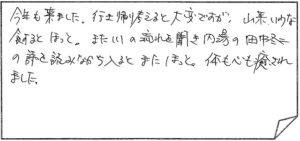 今年も来ました。行き帰り考えると大変ですが、山菜いわな
食すとほっと。また川の流れを聞き内湯の田中冬二
の詩を読みながら入るとまたほっと。体も心も癒され
ました。